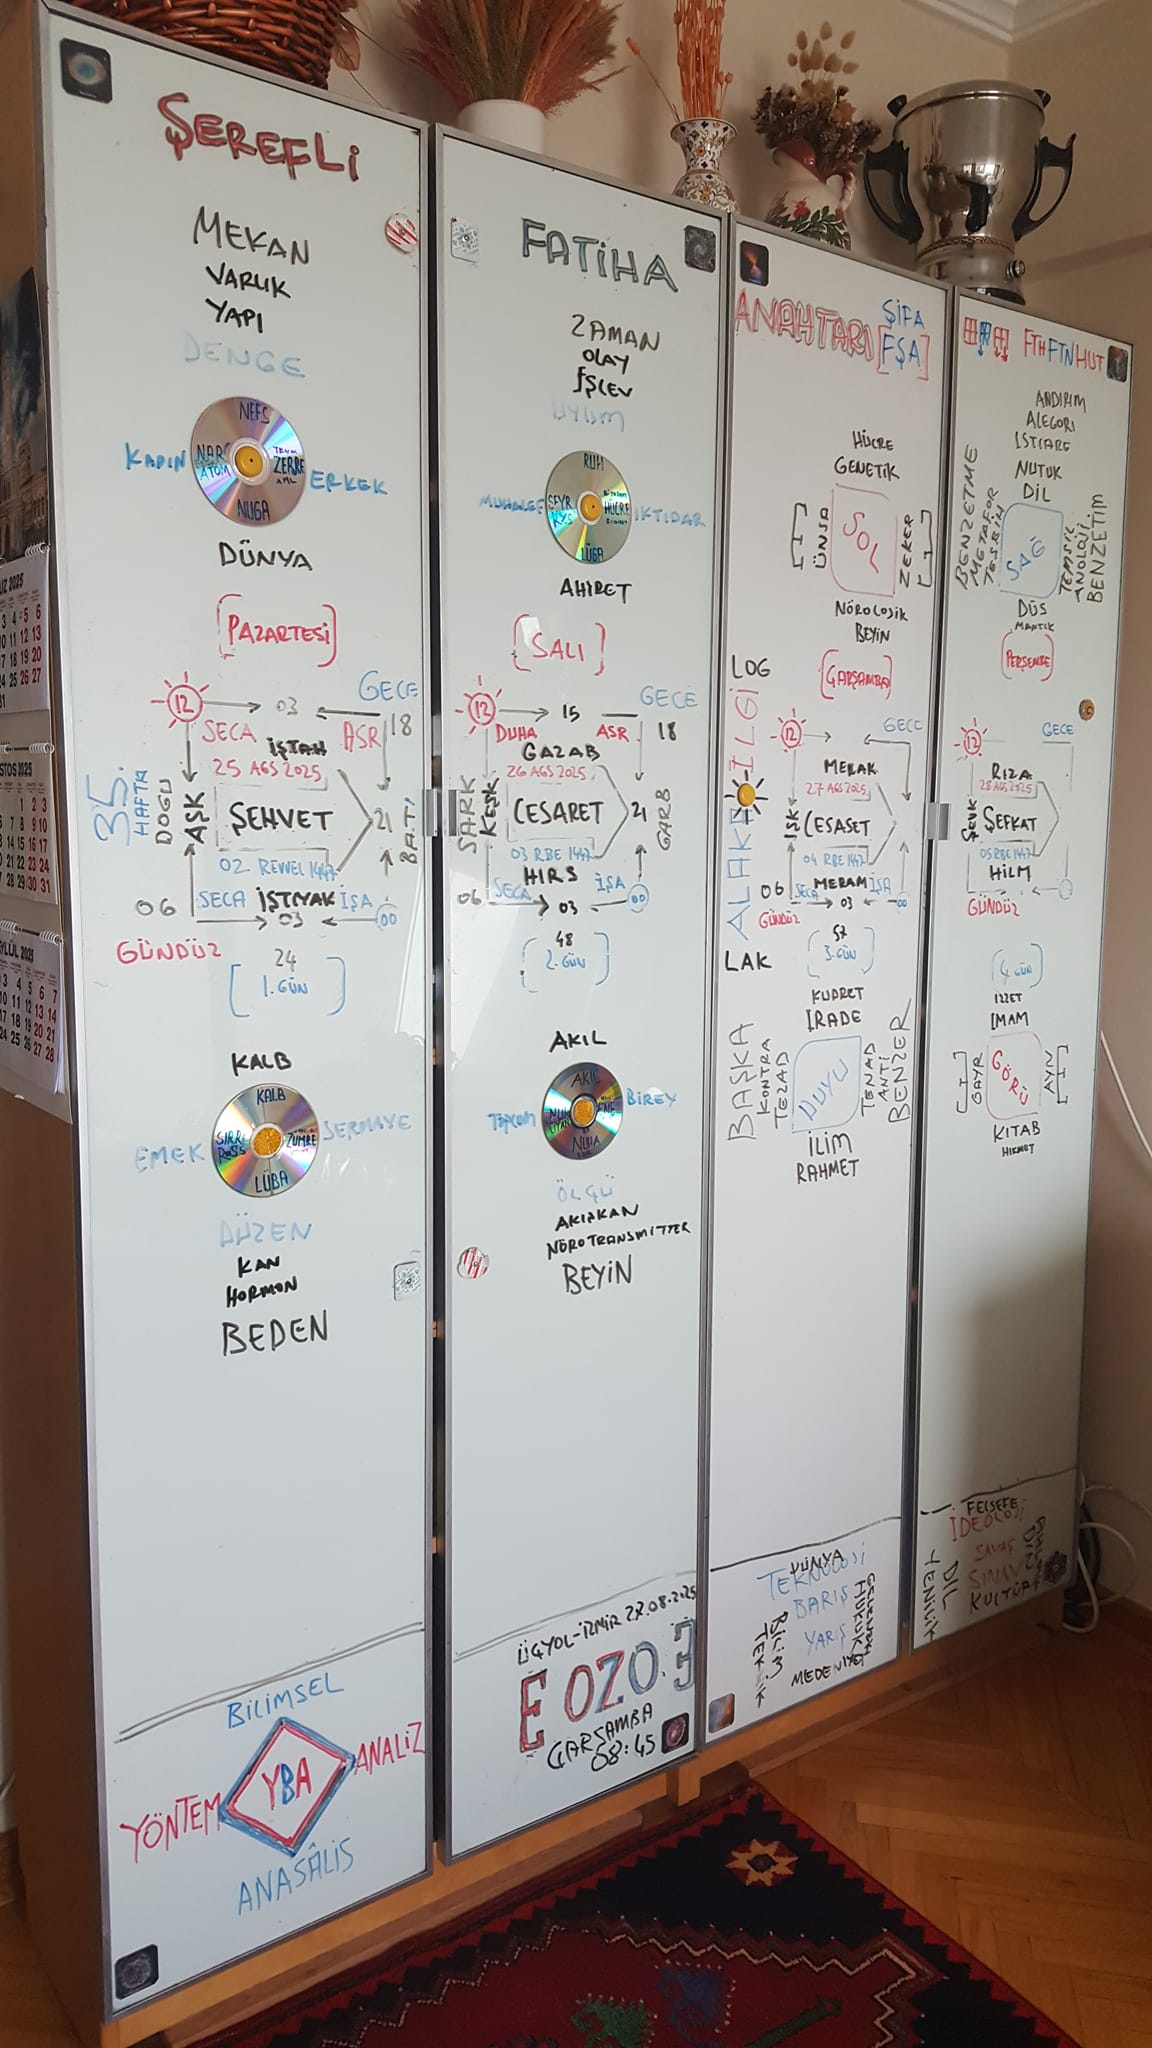 ŞEREFLİ
MEKAN
VARLIK
YAPI
DENGE
NEFS
KADIN
NAR
ATOM
ZERRE
ERKEK
NUGA
DÜNYA
[PAZARTESİ]
12
03
GECE
18
SECA
İŞTAH
ASR
25 AGS 2025
35.
HAFTA
DOGU
AŞK
ŞEHVET
21
BATI
02 REVVEL 1447
06
SECA
İŞTİYAK
İŞA
03
00
GÜNDÜZ
24
[1.GÜN]
KALB
KALB
EMEK
SIRR
ZÜMRE
SERMAYE
LÜBA
DÜZEN
KAN
HORMON
BEDEN
BİLİMSEL
YÖNTEM
YBA
ANALİZ
ANASÂLİS
FATİHA
ZAMAN
OLAY
İŞLEV
UYUM
RUH
MUHALEF
SEYR
HÜCRE
İKTİDAR
LÜGA
AHİRET
[SALI]
12
15
GECE
DUHA
ASR
18
GAZAB
26 AGS 2025
ŞARK
KEŞK
CESARET
21
GARB
03 RBE 1447
HIRS
06
SECA
İŞA
03
00
48
[2.GÜN]
AKIL
AKIL
TOPLUM
BİREY
NUHA
ÖLÇÜ
AKIŞKAN
NÖROTRANSMİTTER
BEYİN
ÜÇYOL-İZMİR 27.08.2025
E OZO.E
ÇARŞAMBA
08:45
ANAHTARI
ŞİFA
[FŞA]
HÜCRE
GENETİK
ÜNSA
SOL
ZEKER
NÖROLOJİK
BEYİN
LOG
[ÇARŞAMBA]
İLGİ
12
GECE
MERAK
27 AGS 2025
IŞK
CESASET
04 RBE 1447
ALAKA
06
SECA
MERAM
İŞA
GÜNDÜZ
03
00
LAK
[3.GÜN]
KUDRET
İRADE
BAŞKA
KONTRA
TEZAD
DUYU
TENAD
ANTİ
BENZER
İLİM
RAHMET
DÜNYA
TEKNOLOJİ
BARIŞ
YARIŞ
MEDENİYET
BİLİM
TEKNİK
HUKUK
FTH FTN HUT
ANDIRIM
ALEGORİ
İSTİARE
NUTUK
DİL
BENZETME
METAFOR
TEŞBİH
SAĞ
TEMSİL
ANOLOJİ
BENZETİM
DÜŞ
MANTIK
[PERŞENBE]
12
GECE
RIZA
28 AGS 2025
ŞEVK
ŞEFKAT
05 RBE 1447
HİLM
GÜNDÜZ
[4.GÜN]
İZZET
İMAM
GAYR
GÖRÜ
AYN
KİTAB
HİKMET
FELSEFE
İDEOLOJİ
SAVAŞ
SINAV
KÜLTÜR
DİL